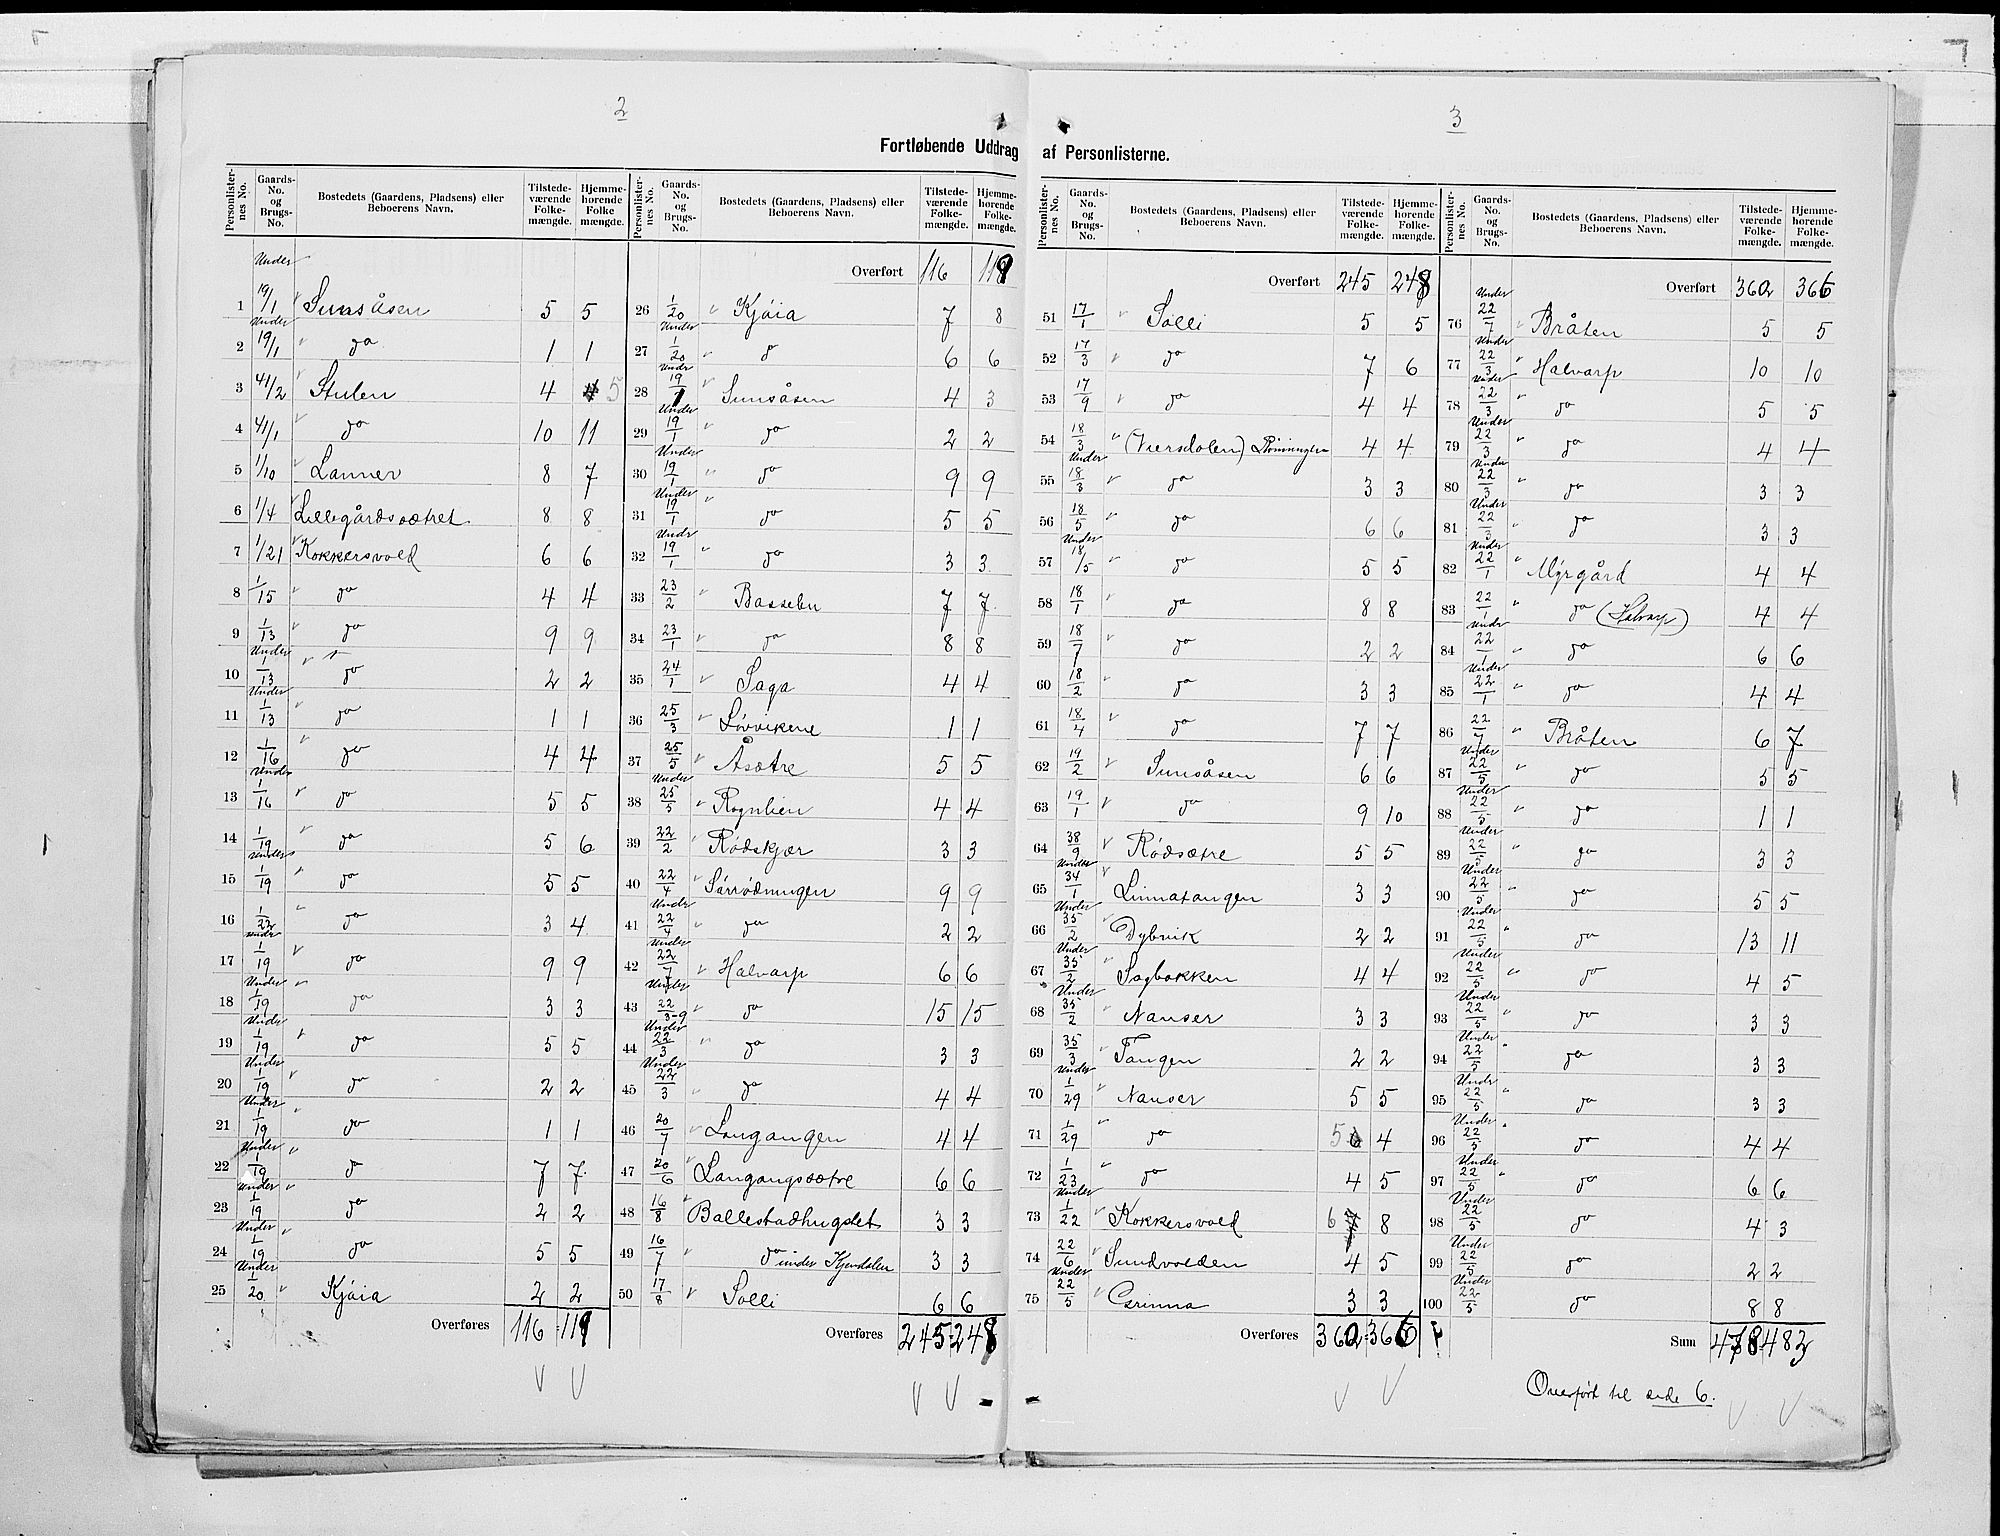 2
3
Fortløbende Uddrag af Personlisterne.
Personlisternes No. Gaards-No. og Brugs-No. Bostedets (Gaardens, Pladsens) eller Beboerens Navn. Tilstedeværende Folkemængde. Hjemmehorende Folke mængde.
1 Under 19/1 " Sunsåsen 5 5
2 Under 19/1 " do 1 1
3 41/2 " Stulen 4 4 5
4 41/1 do 10 11
5 1/10 " Lanner 8 7
6 1/4 " Lillegårdssætret 8 8
7 1/21 " Kokkersvold 6 6
8 1/15 " do 4 4
9 1/13 " do 9 9
10 Under 1/13 " do 2 2
11 Under 1/13 " do 1 1
12 1/16 " do 4 4
13 Under 1/16 " do 5 5
14 1/19 " do 5 6
15 Under 1/19 " do 5 5
16 1/22 " do 3 4
17 Undr 1/19 " do 9 9
18 Under 1/19 " do 3 3
19 Undr 1/19 " do 5 5
20 Under 1/19 " do 2 2
21 Under 1/19 " do 1 1
22 Under 1/19 " do 7 7
23 Under 1/19 " do 2 2
24 Under 1/19 " do 5 5
25 Under 1/20 " Kjøia 2 2
Overføres 116 119
Personlisternes No. Gaards-No. og Brugs-No. Bostedets (Gaardens, Pladsens) eller Beboerens Navn. Tilstedeværende Folkemængde. Hjemmehorende Folkemængde.
Overført 116 119
26 1/20 " Kjøia 7 8
27 Under 1/20 " do 6 6
28 Undr 19/1 " Sunsåsen 4 3
29 Under 19/1 " do 2 2
30 Under 19/1 " do 9 9
31 Under 19/1 " do 5 5
32 Undr 19/1 " do 3 3
33 23/2 " Bassebu 7 7
34 23/1 " do 8 8
35 24/1 " Saga 4 4
36 25/3 " Løvvikene 1 1
37 25/5 " Åsætre 5 5
38 Under 25/5 " Rognlien 4 4
39 22/2 " Rødskjær 3 3
40 22/4 " Sørrødningen 9 9
41 Undr 22/4 " do 2 2
42 Under 22/7 " Halvarp 6 6
43 Under 22/3-9 " do 15 15
44 Under 22/3 " do 3 3
45 Under 22/3 " do 4 4
46 20/7 " Langangen 4 4
47 20/6 " Langangssætre 6 6
48 16/8 " Ballestadhugdet 3 3
49 16/7 " do under Kjendalen 3 3
50 17/8 " Solli 6 6
Overføres 245 248
Personlisternes No. Gaards-No. og Brugs-No. Bostedets (Gaardens, Pladsens) eller Beboerens Navn. Tilstedeværende Folkemængde. Hjemmehorende Folkemængde.
Overført 245 248
51 17/1 " Solli 5 5
52 17/3 " do 7 6
53 17/9 " do 4 4
54 18/3 " (Viersdalen) 4 4
55 Under 18/3 " do 3 3
56 18/5 " do 6 6
57 Under 18/5 " do 5 5
58 18/1 " do 8 8
59 18/7 " do 2 2
60 18/2 " do 3 3
61 18/4 " do 7 7
62 19/2 " Sunsåsen 6 6
63 19/1 " do 9 10
64 38/9 " Rødsætre 5 5
65 Under 34/1 " Linnatangen 3 3
66 Under 35/2 " Dybvik 2 2
67 Under 35/2 " Sagbakken 4 4
68 Under 35/2 " Nanser 3 3
69 35/3 " Tangen 2 2
70 Under 1/29 " Nanser 5 5
71 1/29 " do 5 6 4
72 1/23 " do 4 5
73 Under 1/22 " Kokkersvold 6 7 8
74 22/6 " Sundvolden 4 5
75 Under 22/5 " Corinna 3 3
Overføres 362 366
Personlisternes No. Gaards-No. og Brugs-No. Bostedets (Gaardens, Pladsens) eller Beboerens Navn. Tilstedeværende Folkemængde. Hjemmehorende Folkemængde.
Overført 362 366
76 Under 22/7 " Bråten 5 5
77 Under 22/3 " Halvarp 10 10
78 Under 22/3 " do 5 5
79 Under 22/3 " do 4 4
80 Under 22/3 " do 3 3
81 Under 22/3 " do 3 3
82 Under 22/1 " Myrgård 4 4
83 22/1 " do (Halvarp) 4 4
84 Undr 22/1 " do 6 6
85 Under 22/1 " do 4 4
86 22/7 " Bråten 6 7
87 Under 22/5 " do 5 5
88 Under 22/5 " do 1 1
89 Under 22/5 " do 3 3
90 Under 22/5 " do 5 5
91 Under 22/5 " do 13 11
92 Under 22/5 " do 4 5
93 Under 22/5 " do 3 3
94 Under 22/5 " do 3 3
95 Undr 22/5 " do 3 3
96 Under 22/5 " do 4 4
97 Under 22/5 " do 6 6
98 Under 22/5 do 4 3
99 Under 22/5 do 2 2
100 Under 22/5 do 8 8
Sum 478 483
Overført til side 6.